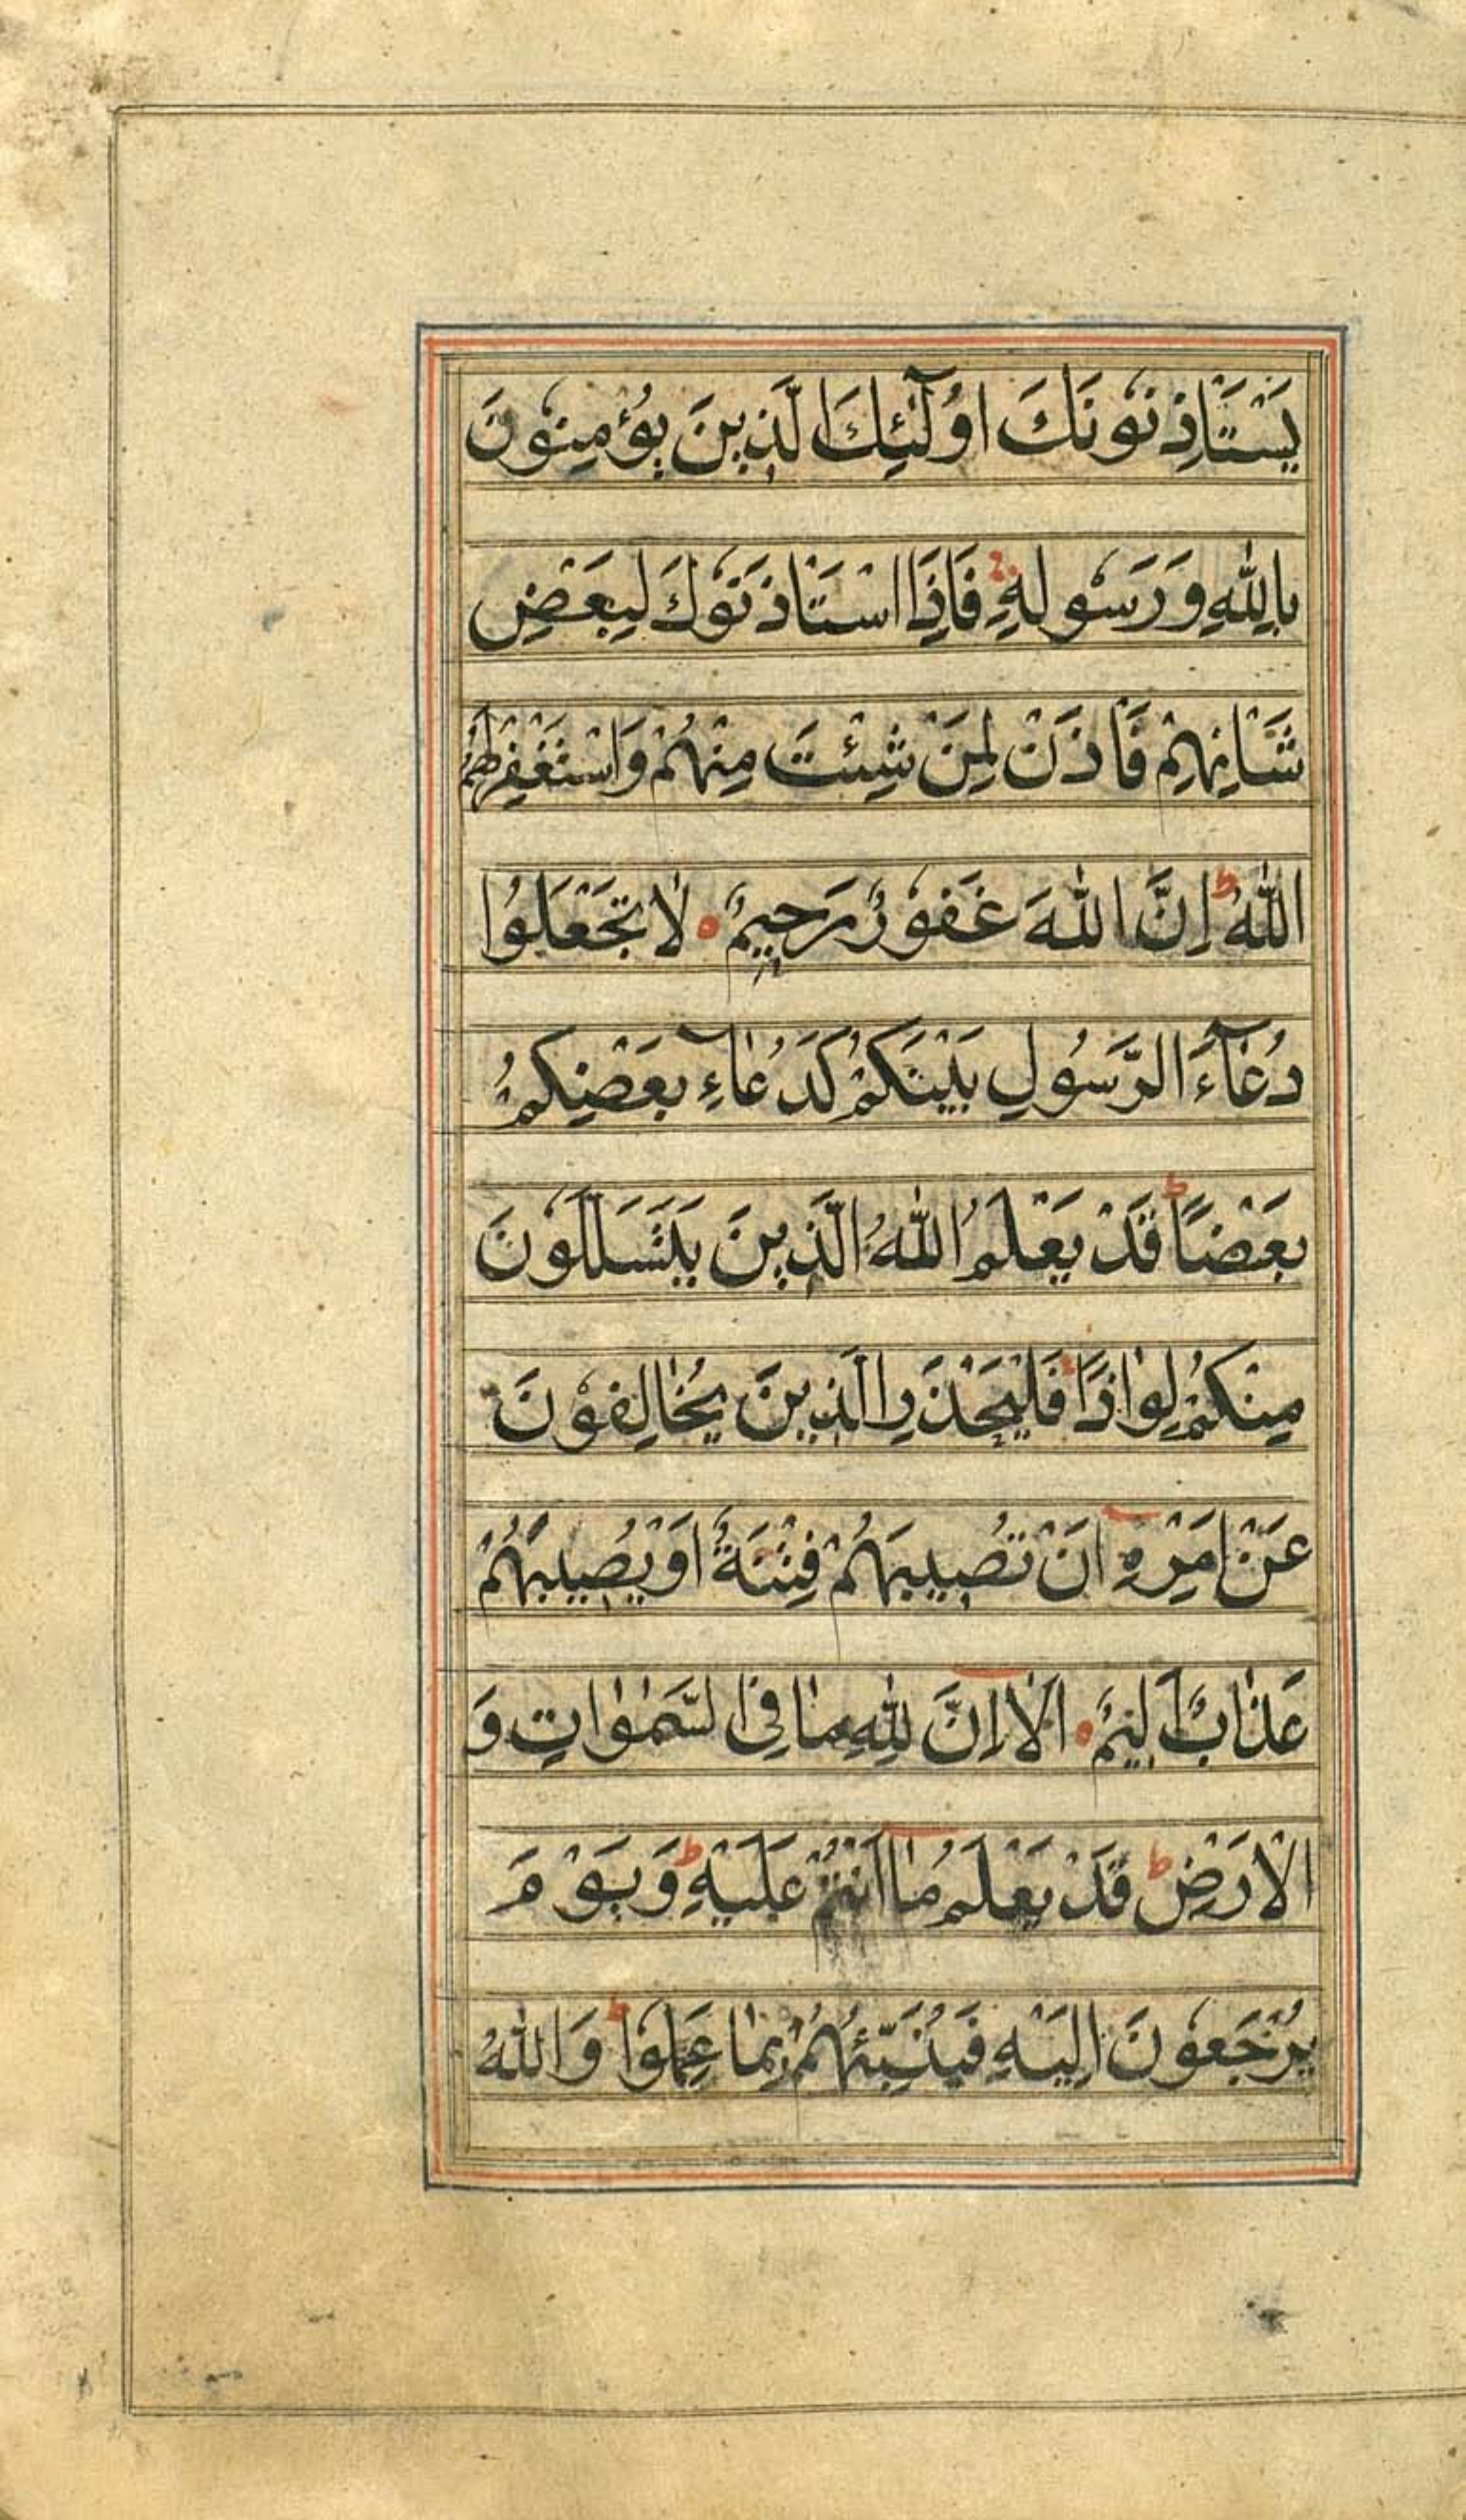 يَسْتَاْذِنُوْنَكَ اُولٰٓئِكَ الَّذِيْنَ يُؤْمِنُوْنَ
بِاللّٰهِ وَرَسُوْلِهٖ فَاِذَا اسْتَاْذَنُوْكَ لِبَعْضِ
شَاْنِهِمْ فَاْذَنْ لِمَنْ شِئْتَ مِنْهُمْ وَاسْتَغْفِرْ لَهُمُ
اللّٰهَ ط اِنَّ اللّٰهَ غَفُوْرٌ رَحِيْمٌ ۝ لَا تَجْعَلُوْا
دُعَآءَ الرَّسُوْلِ بَيْنَكُمْ كَدُعَآءِ بَعْضِكُمْ
بَعْضًا ط قَدْ يَعْلَمُ اللّٰهُ الَّذِيْنَ يَتَسَلَّلُوْنَ
مِنْكُمْ لِوَاذًا فَلْيَحْذَرِ الَّذِيْنَ يُخَالِفُوْنَ
عَنْ اَمْرِهٖ اَنْ تُصِيْبَهُمْ فِتْنَةٌ اَوْ يُصِيْبَهُمْ
عَذَابٌ اَلِيْمٌ ۝ اَلَا اِنَّ لِلّٰهِ مَا فِي السَّمٰوَاتِ وَ
الْاَرْضِ ط قَدْ يَعْلَمُ مَا اَنْتُمْ عَلَيْهِ ط وَيَوْمَ
يُرْجَعُوْنَ اِلَيْهِ فَيُنَبِّئُهُمْ بِمَا عَمِلُوْا ط وَاللّٰهُ